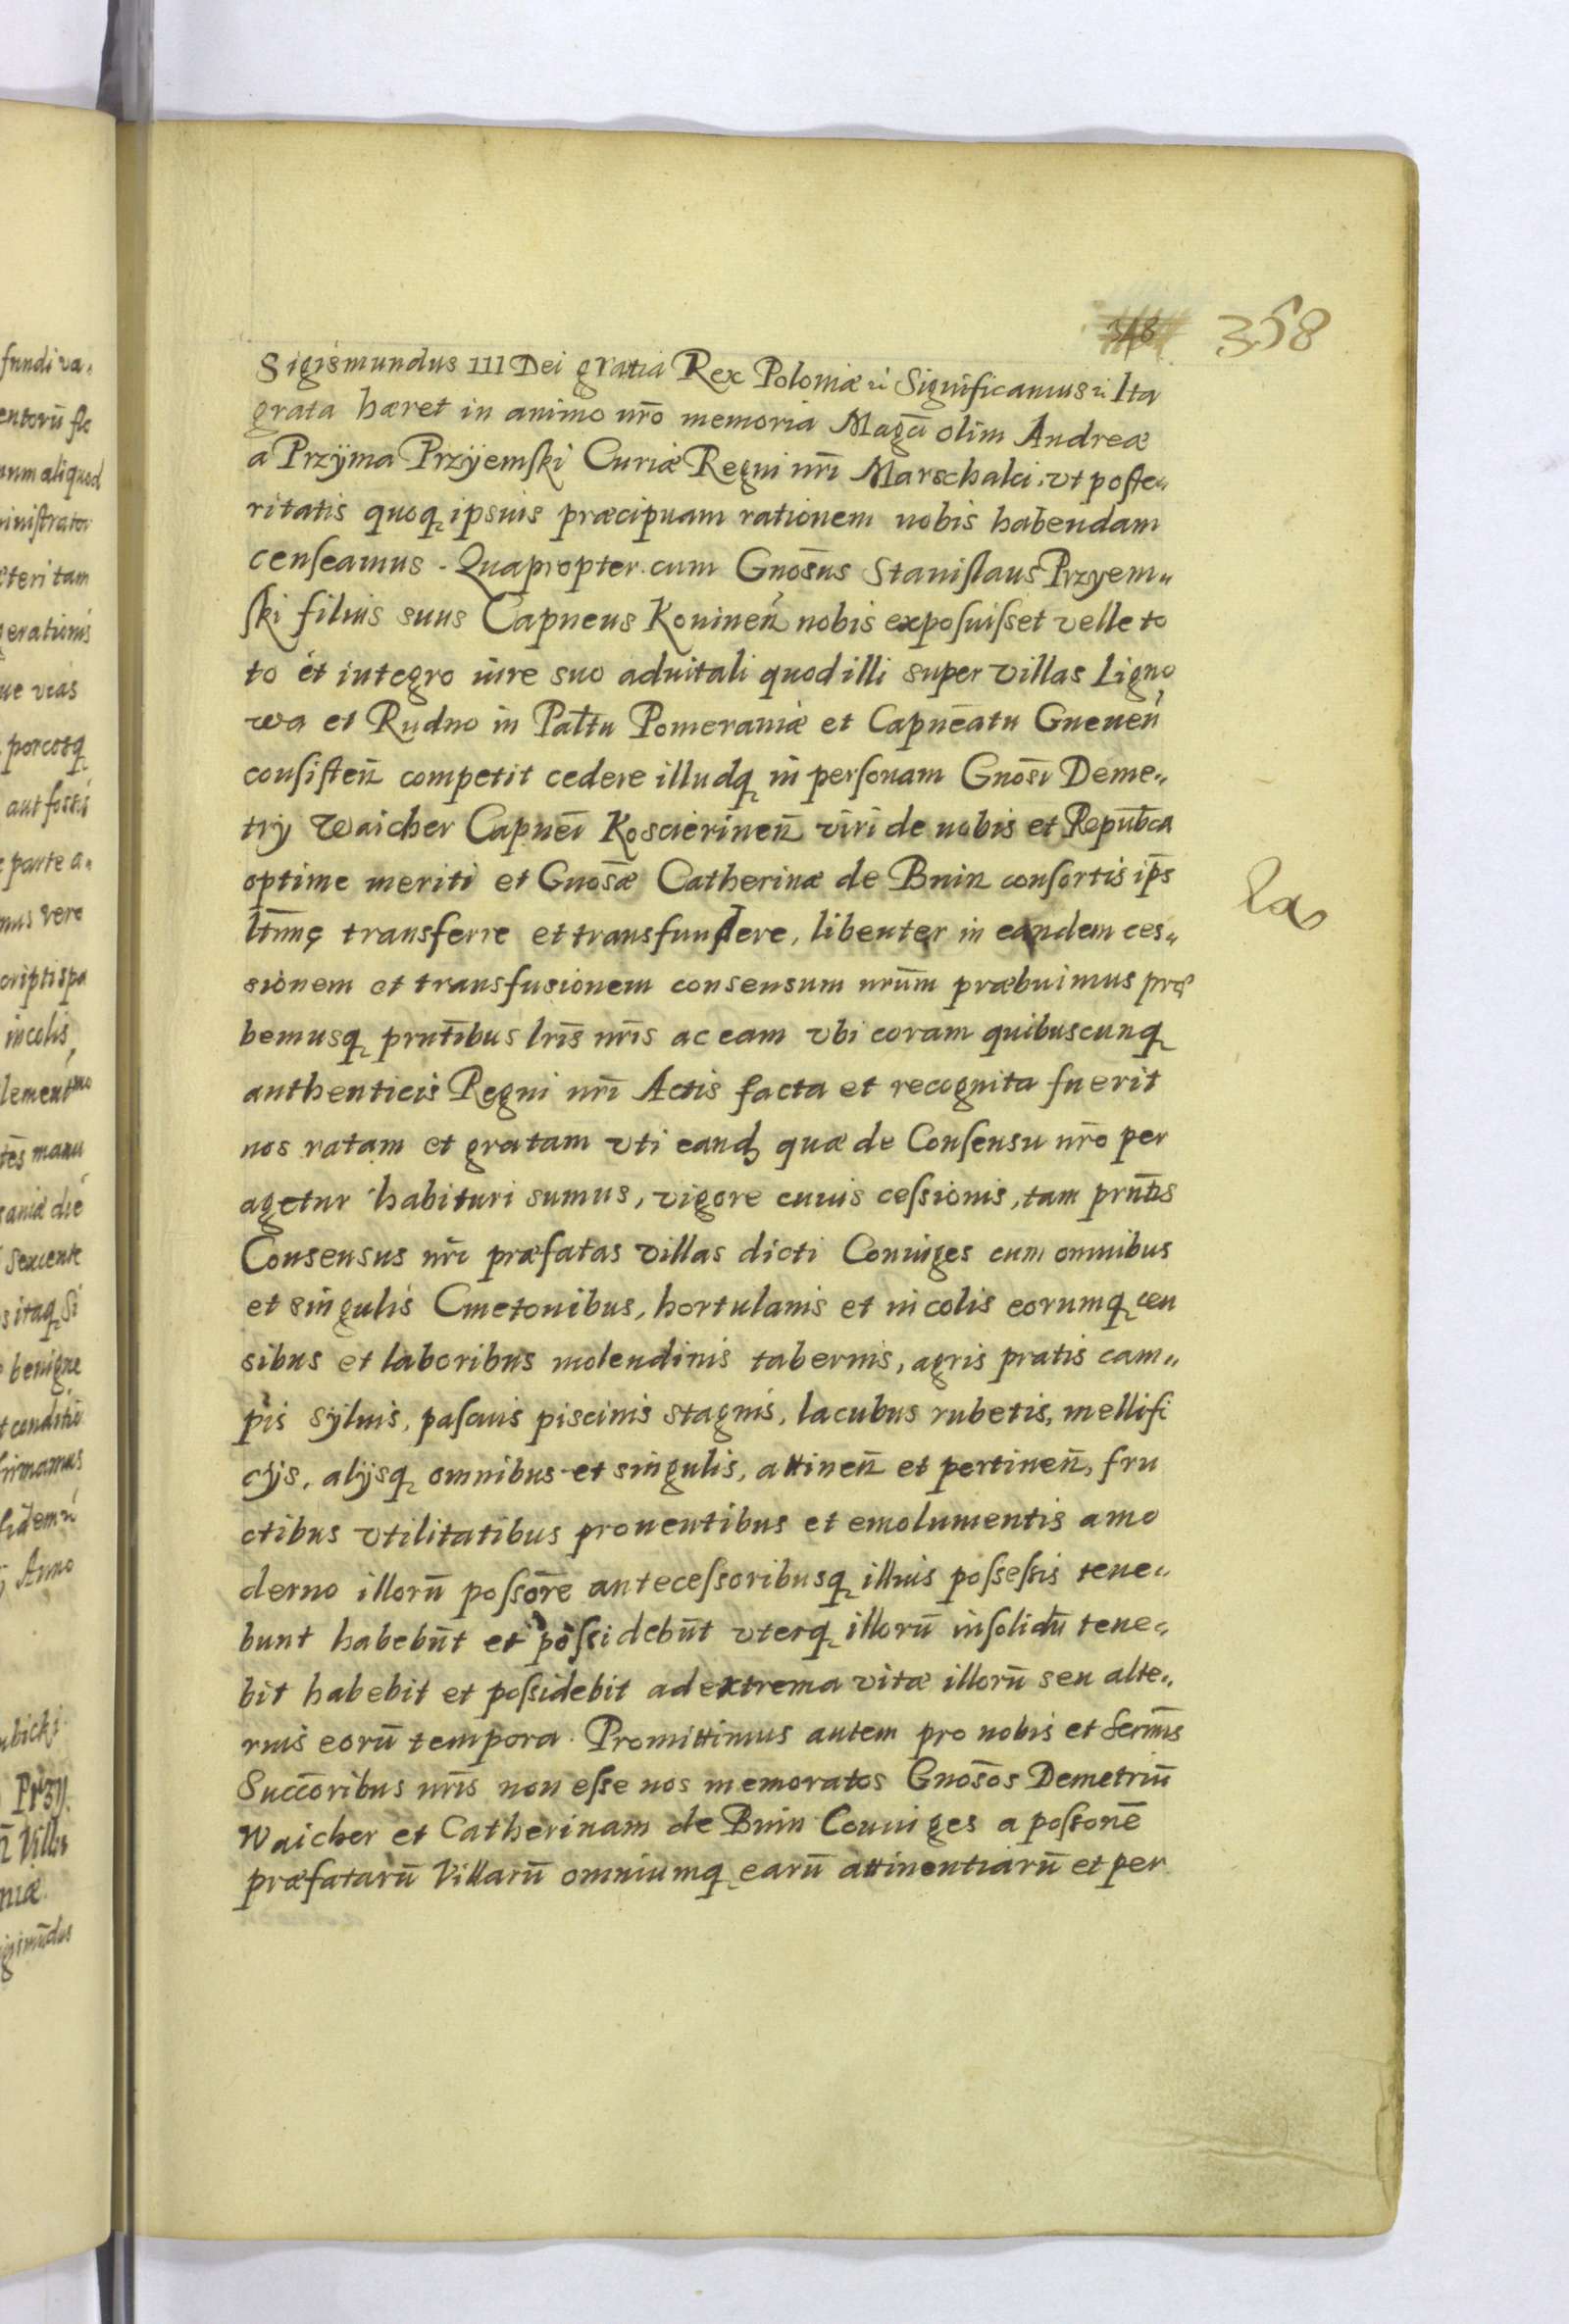 358
Sigismundus III Dei gratia Rex Poloniæ Significamus Ita
grata hæret in animo nr̄o memoria Magci olim Andreæ
a Przÿma Przÿemski Curiæ Regni nr̄i Marschalci, vt poste„
ritatis quoq ipsius præcipuam rationem nobis habendam
censeamus. Quapropter cum Gnōsus Stanislaus Przyem„
ski filius suus Capneus Koninen̄ nobis exposuisset velle to
to et integro iure suo aduitali quod illi super villas Ligno
wa et Rudno in Paltu Pomeraniæ et Capnēatu Gneuen̄
consisten̄ competit cedere illudq in personam Gnōsi Deme„
trij Waicher Capnēi Koscierinen̄ viri de nobis et Repub̄ca
optime meriti et Gnōsæ Catherinæ de Bnin consortis ip̄s
ltm̄æ transferre et transfundere, libenter in eandem ces„
sionem et transfusionem consensum nrūm præbuimus præ
bemusq prntībus lrīs nrīs ac eam vbi coram quibuscunq
authenticis Regni nrī Actis facta et recognita fuerit
nos ratam et gratam vti eand quæ de Consensu nrō per
agetur habituri sumus, vigore cuius cessionis, tam prntīs
Consensus nrī præfatas villas dicti Coniuges cum omnibus
et singulis Cmetonibus, hortulanis et incolis eorumq cen
sibus et laboribus molendinis tabernis, agris pratis cam„
pis syluis, pascuis piscinis stagnis, lacubus rubetis, mellifi
cÿs, alÿsq omnibus et singulis, attinen̄ et pertinen̄, fru
ctibus vtilitatibus prouentibus et emolumentis a mo
derno illorū possōre antecessoribusq illius possessis tene„
bunt habebūt et possidebūt vterq illorū insolidū tene„
bit habebit et possidebit ad extrema vitæ illorū seu alte„
rius eorū tempora. Promittimus autem pro nobis et Serm̄is
Succōribus nrīs non esse nos memoratos Gnōsos Demetriū
Waicher et Catherinam de Bnin Coniuges a possonē
præfatarū Villarū omniumq earū attinentiarū et per